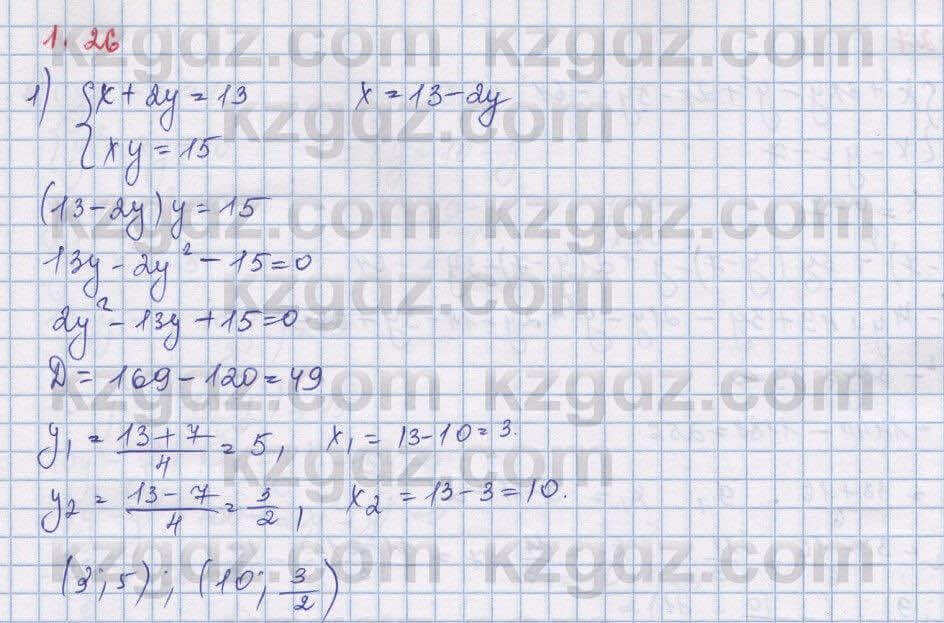 1. 26
1) { x + 2y = 13    x = 13 - 2y
xy = 15
(13 - 2y) y = 15
13y - 2y² - 15 = 0
2y² - 13y + 15 = 0
D = 169 - 120 = 49
y₁ = (13 + 7)/4 = 5, x₁ = 13 - 10 = 3.
y₂ = (13 - 7)/4 = 3/2, x₂ = 13 - 3 = 10.
(3; 5); (10; 3/2)
kzgdz.com kzgdz.com
kzgdz.com
kzgdz.com kzgdz.com
kzgdz.com
kzgdz.com kzgdz.com
kzgdz.com
kzgdz.com kzgdz.com